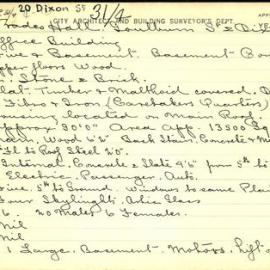 20 Dixon St
CITY ARCHITECT AND BUILDING SURVEYOR'S DEPT.
Trades Hall Southern St & Di
Office Building
Five & Basement. Basement - Con
Upper floors Wood.
Stone & Brick.
Flat. Timber & Malthoid covered. D
Fibro & Iron (Caretakers Quarters)
housing located on Main Roof
Approx 90'0". Area App. 13500 Sq
Wood Back Stair Concrete &
to Roof Steel 2'0".
Internal. Concrete & Slate 4'6" from 5th to
Electric, Passenger, Auto.
Five. 5th to Ground. Windows to same Plai
Four Skylights. Artic Glass
6. 20 Males 6 Females.
Nil
Nil
1 Large. Basement. Motors, lift &